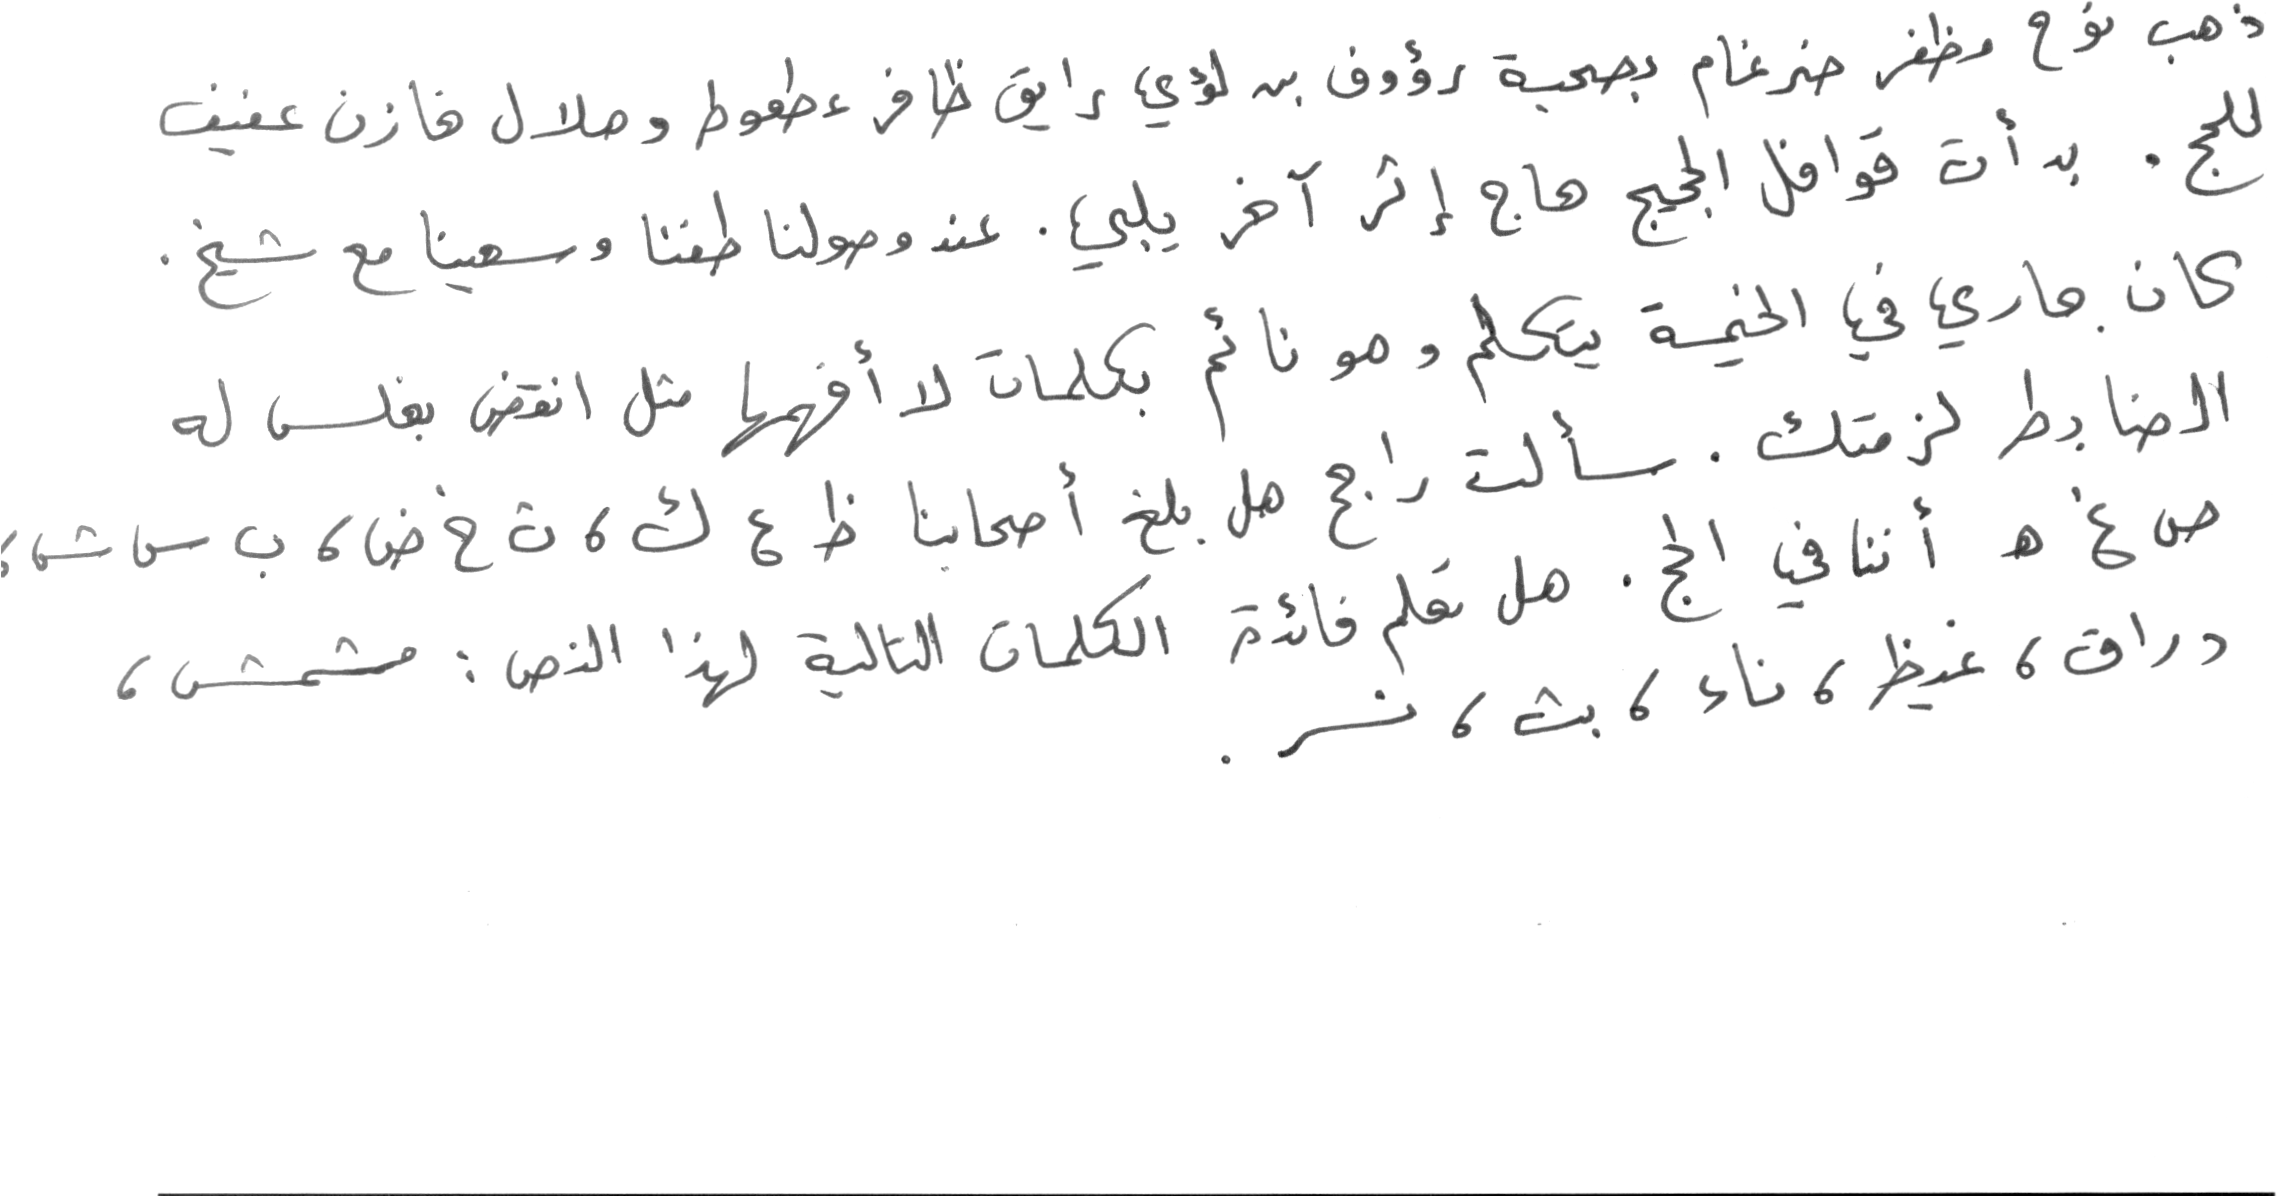 ذهب نوح مظفر ضرغام بصحبة رؤوف بن لؤي رايق ظافر عطعوط وهلال مازن عفيف
للحج . بدأت قوافل الحجيج هاج إثر آخر يلبي . عند وصولنا طفنا وسعينا مع شيخ .
كان جاري في الخيمة يتكلم وهو نائم بكلمات لا أفهمها مثل انقض بغلس له
الضابط لزمتك . سألت راجح هل بلغ أصحابنا ظ ع ك ، ث خ ض ، ب س ش ،
ص غ ه أننا في الحج . هل تعلم فائدة الكلمات التالية لهذا النص : مشمش ،
دراق ، غيظ ، ناء ، بث ، نسر .